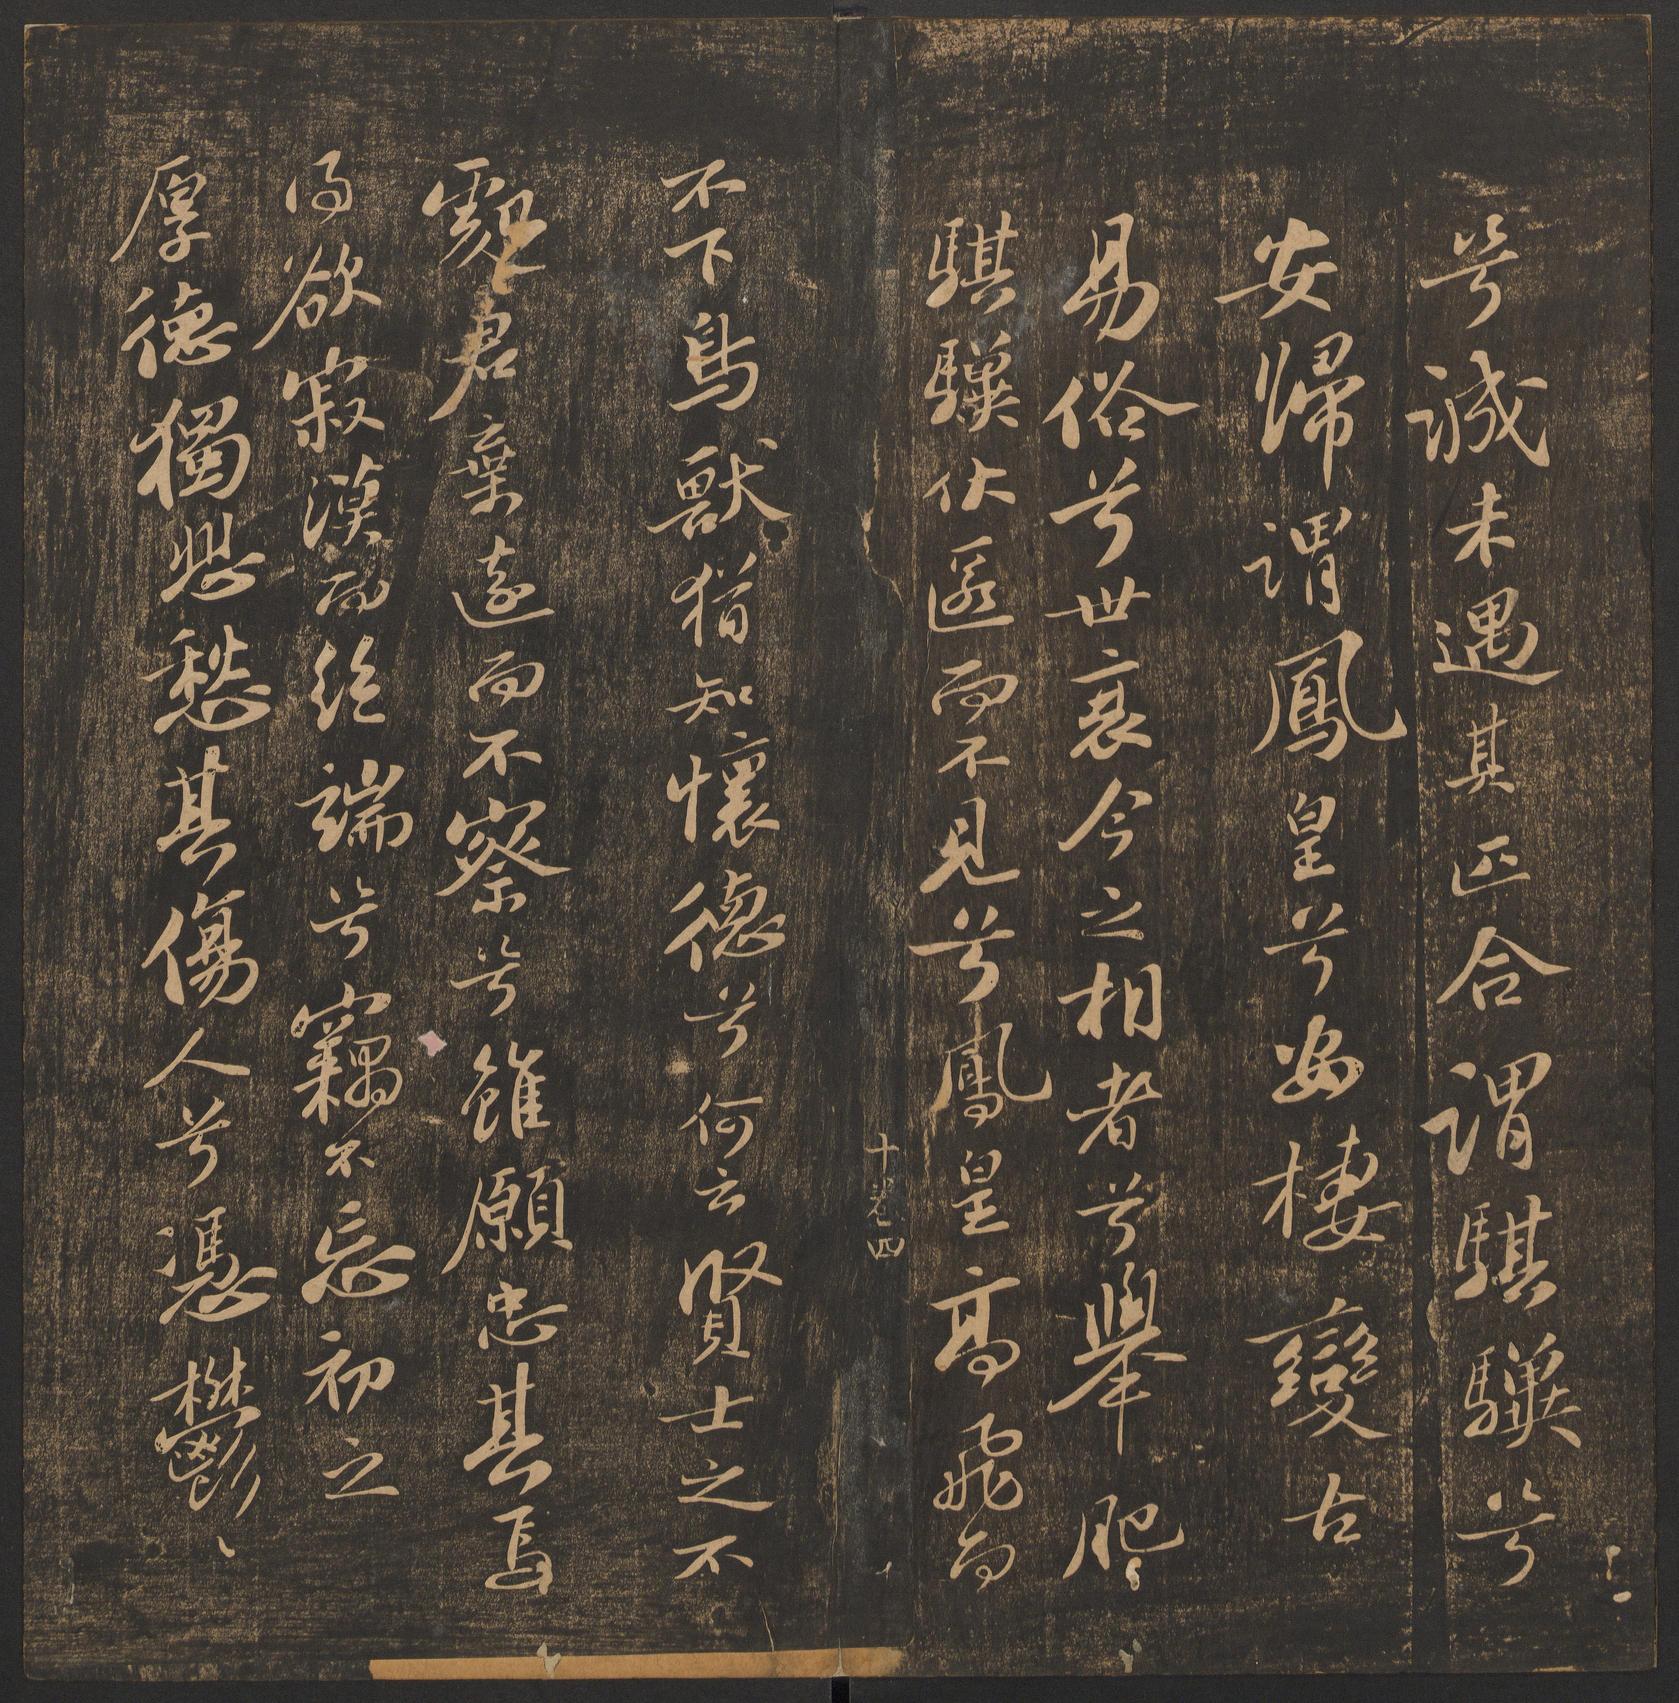 兮誠未遇其匹合謂騏驥兮
安歸謂鳳皇兮安棲變古
易俗兮世衰今之相者兮舉肥
騏驥伏匿而不見兮鳳皇高飛而
不下鳥獸猶知懷德兮何云賢士之不
處君棄遠而不察兮雖願忠其焉
得欲寂漠而絕端兮竊不忘初之
厚德獨悲愁其傷人兮馮欎欝、
十卷四